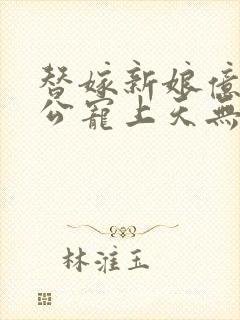 替嫁新娘億
公寵上天無
林淮玉